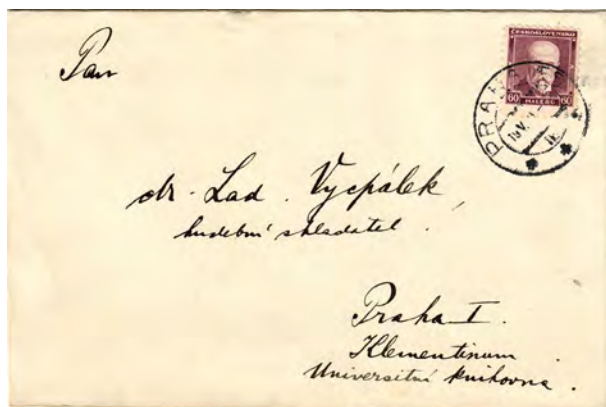 Pan
ČESKOSLOVENSKO
60 HALÉŘŮ 60
PRAHA
dr. Lad. Vycpálek,
hudební skladatel.
Praha I.
Klementinum
Universitní knihovna.